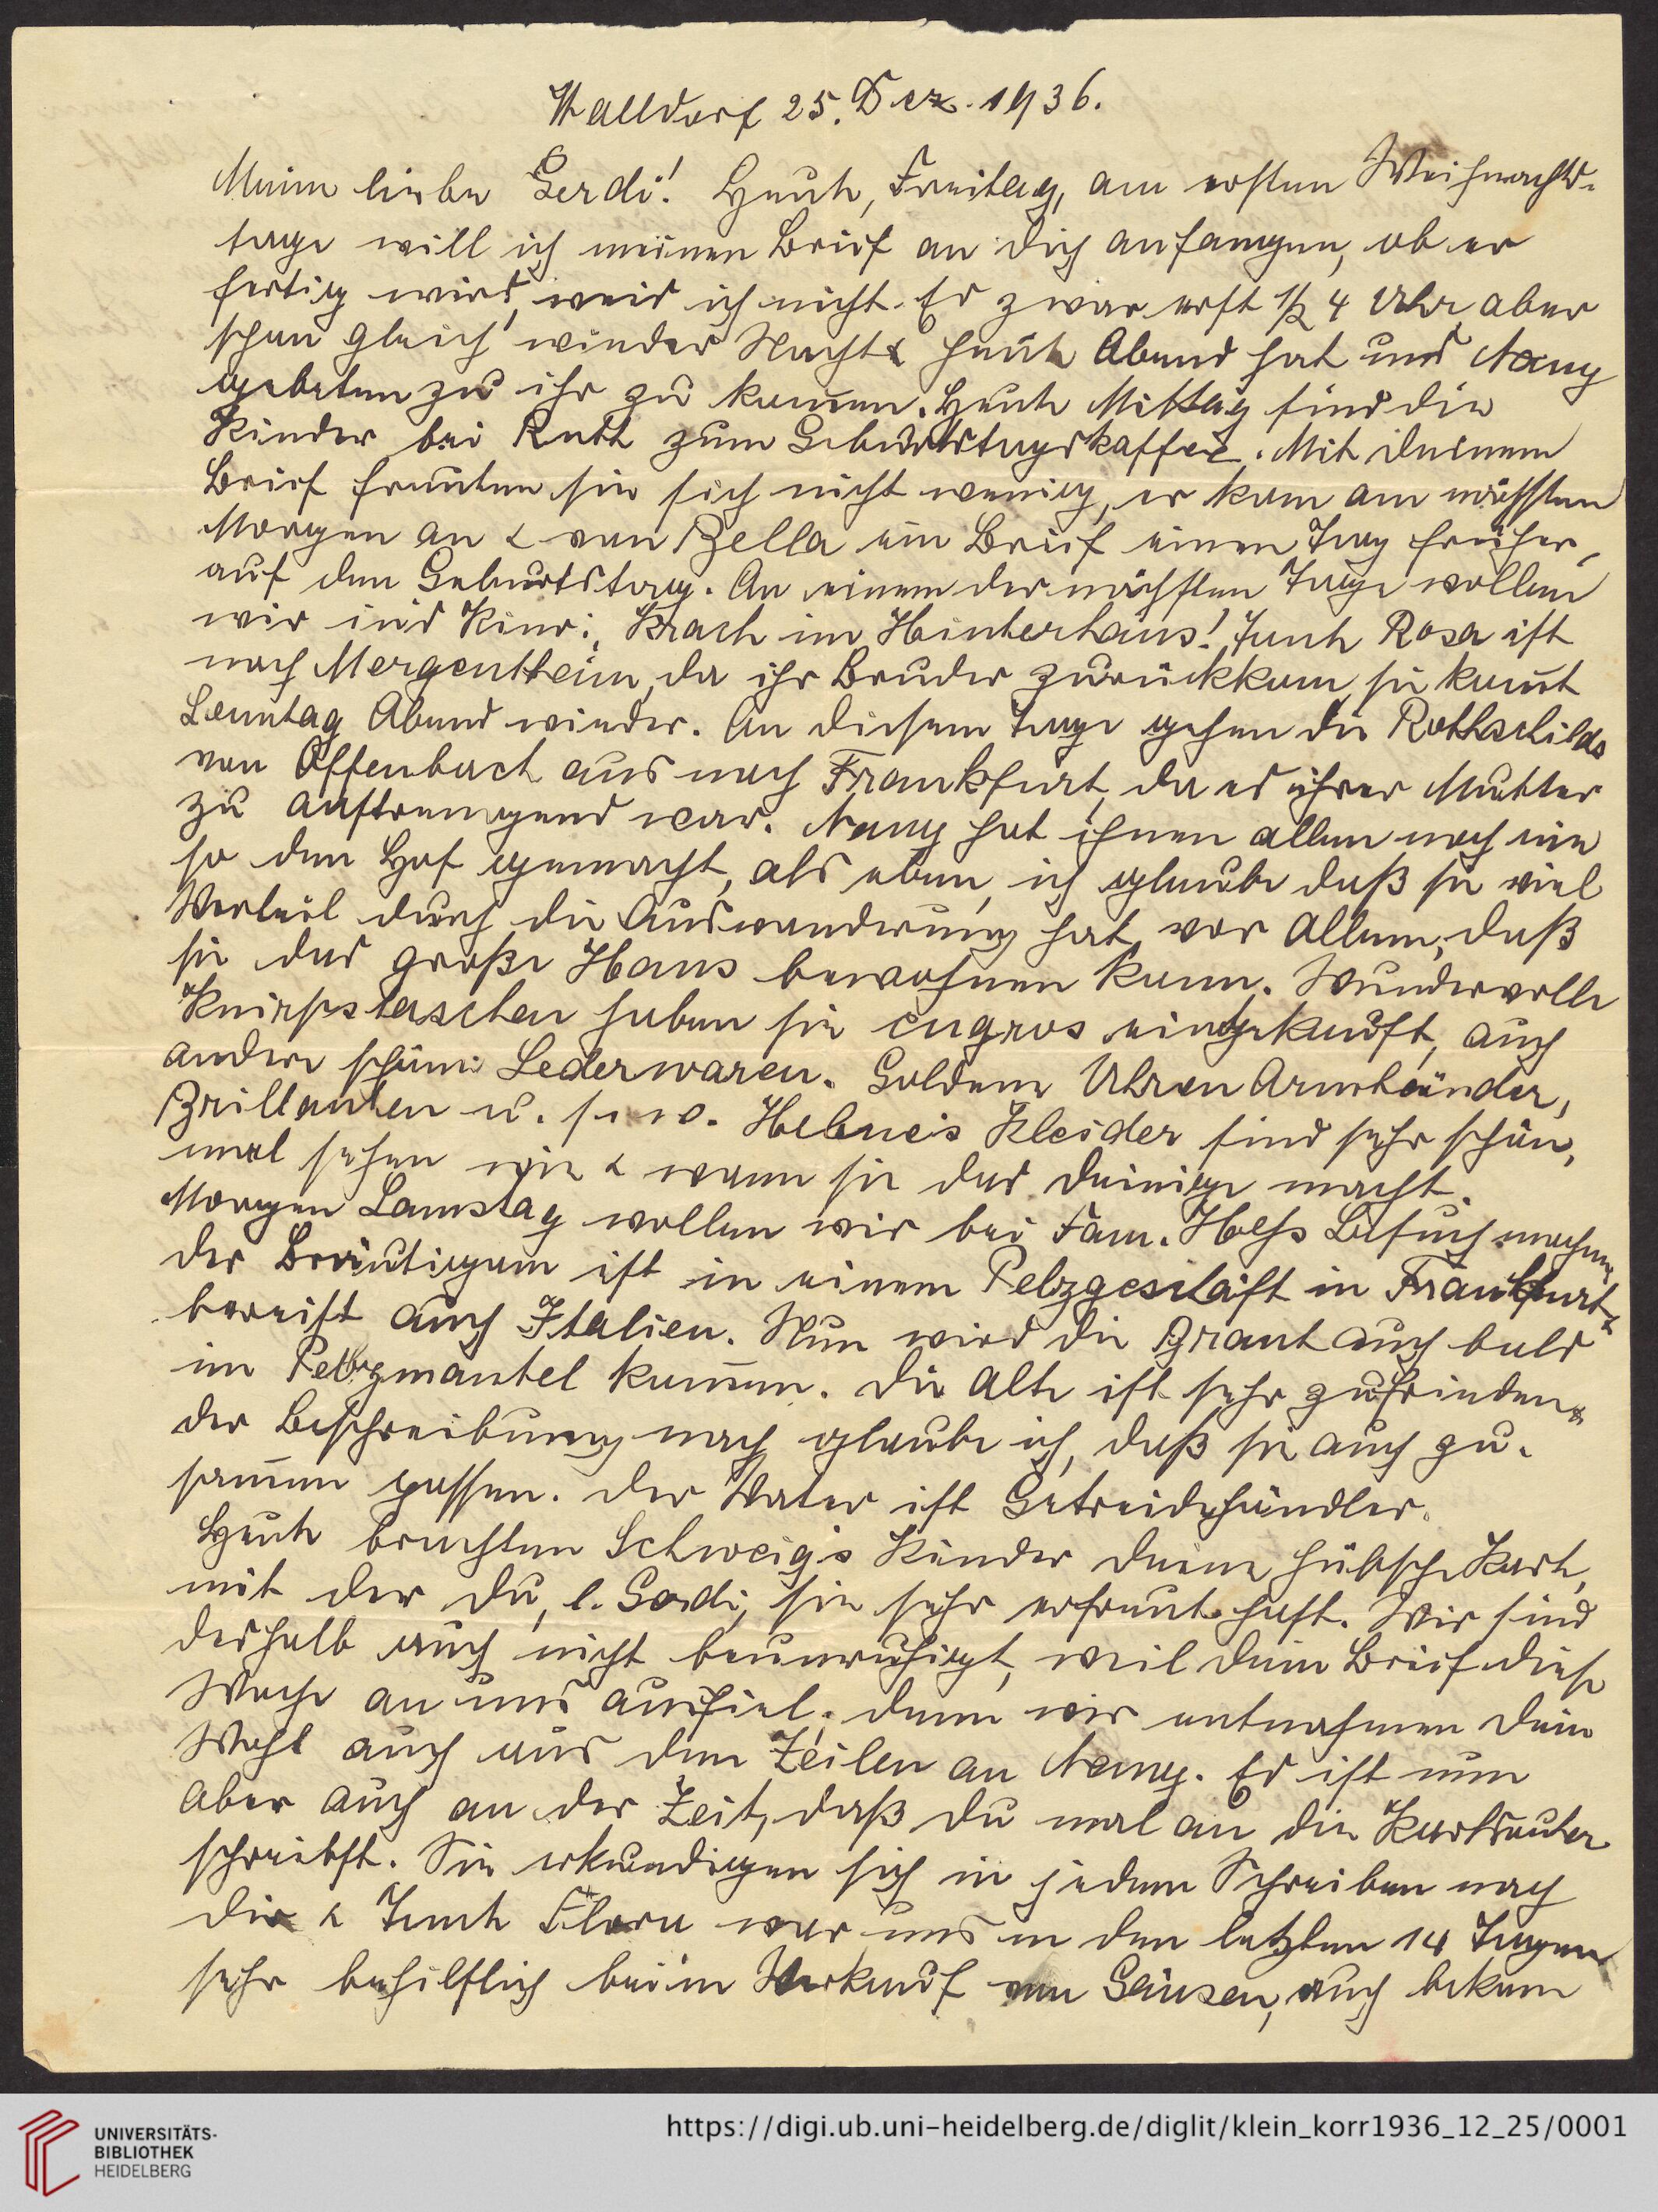 Walldorf 25. Dez. 1936.
Meine liebe Gerdi! Heute, Freitag, am ersten Weihnachts-
tage will ich meinen Brief an dich anfangen, ob er
fertig wird, weis ich nicht. Es zwar erst 1/2 4 Uhr, aber
schon gleich wieder Nacht & heute Abend hat uns Nany
gebeten zu ihr zu kom̅en. Heute Mittag sind die
Kinder bei Ruth zum Geburtstagskaffee. Mit deinem
Brief freuten sie sich nicht wenig, er kam am nächsten
Morgen an & von Bella ein Brief einen Tag früher,
auf den Geburtstag. An einem der nächsten Tage wollen
wir ins Kino: Krach im Hinterhaus! Tante Rosa ist
nach Mergentheim, da ihr Bruder zurückkam, sie kom̅t
Sonntag Abend wieder. An diesem Tage gehen die Rothschilds
von Offenbach aus nach Frankfurt, da es ihrer Mutter
zu anstrengend war. Nany hat ihnen allen noch nie
so den Hof gemacht, als eben, ich glaube daß sie viel
Vorteil durch die Auswanderung hat, vor allem, daß
sie das große Haus bewohnen kann. Wundervolle
Knirpstaschen haben sie engros eingekauft, auch
andere schöne Lederwaren. Goldene Uhren Armbänder,
Brillanten u. s. w. Helene's Kleider sind sehr schön,
mal sehen wie & wann sie das deinige macht.
Morgen Samstag wollen wir bei Fam. Heß Besuch machen,
der Bräutigam ist in einem Pelzgeschäft in Frankfurt &
bereist auch Italien. Nun wird die Braut auch bald
im Pelzmantel kom̅en. Die Alte ist sehr zufrieden &
der Beschreibung nach glaube ich, daß sie auch zu-
sam̅en passen. Der Vater ist Getreidehändler.
Heute brachten Schweig's Kinder deine hübsche Karte,
mit der du, l. Gerdi, sie sehr erfreut hast. Wir sind
deshalb auch nicht beunruhigt, weil dein Brief diese
Woche an uns ausfiel, denn wir entnahmen dein
Wohl auch aus den Zeilen an Nany. Es ist nun
aber auch an der Zeit, daß du mal an die Karlsruher
schreibst. Sie erkundigen sich in jedem Schreiben nach
dir & Tante Flora war uns in den letzten 14 Tagen
sehr behilflich beim Verkauf von Gänsen, auch bekam
UNIVERSITÄTS-
BIBLIOTHEK
HEIDELBERG
https://digi.ub.uni-heidelberg.de/diglit/klein_korr1936_12_25/0001